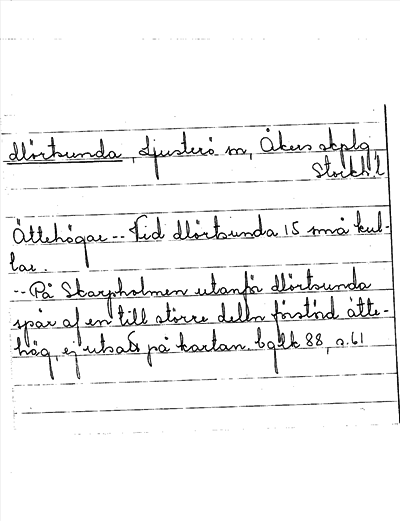 Mörtsunda, Ljusterö sn, Åkers skplg
Stockh. l
Ättehögar -- Vid Mörtsunda 15 små kul-
lar.
-- På Skarpholmen utanför Mörtsunda
spår af en till större delen förstörd ätte-
hög, ej utsatt på kartan. bglk 88, s. 61